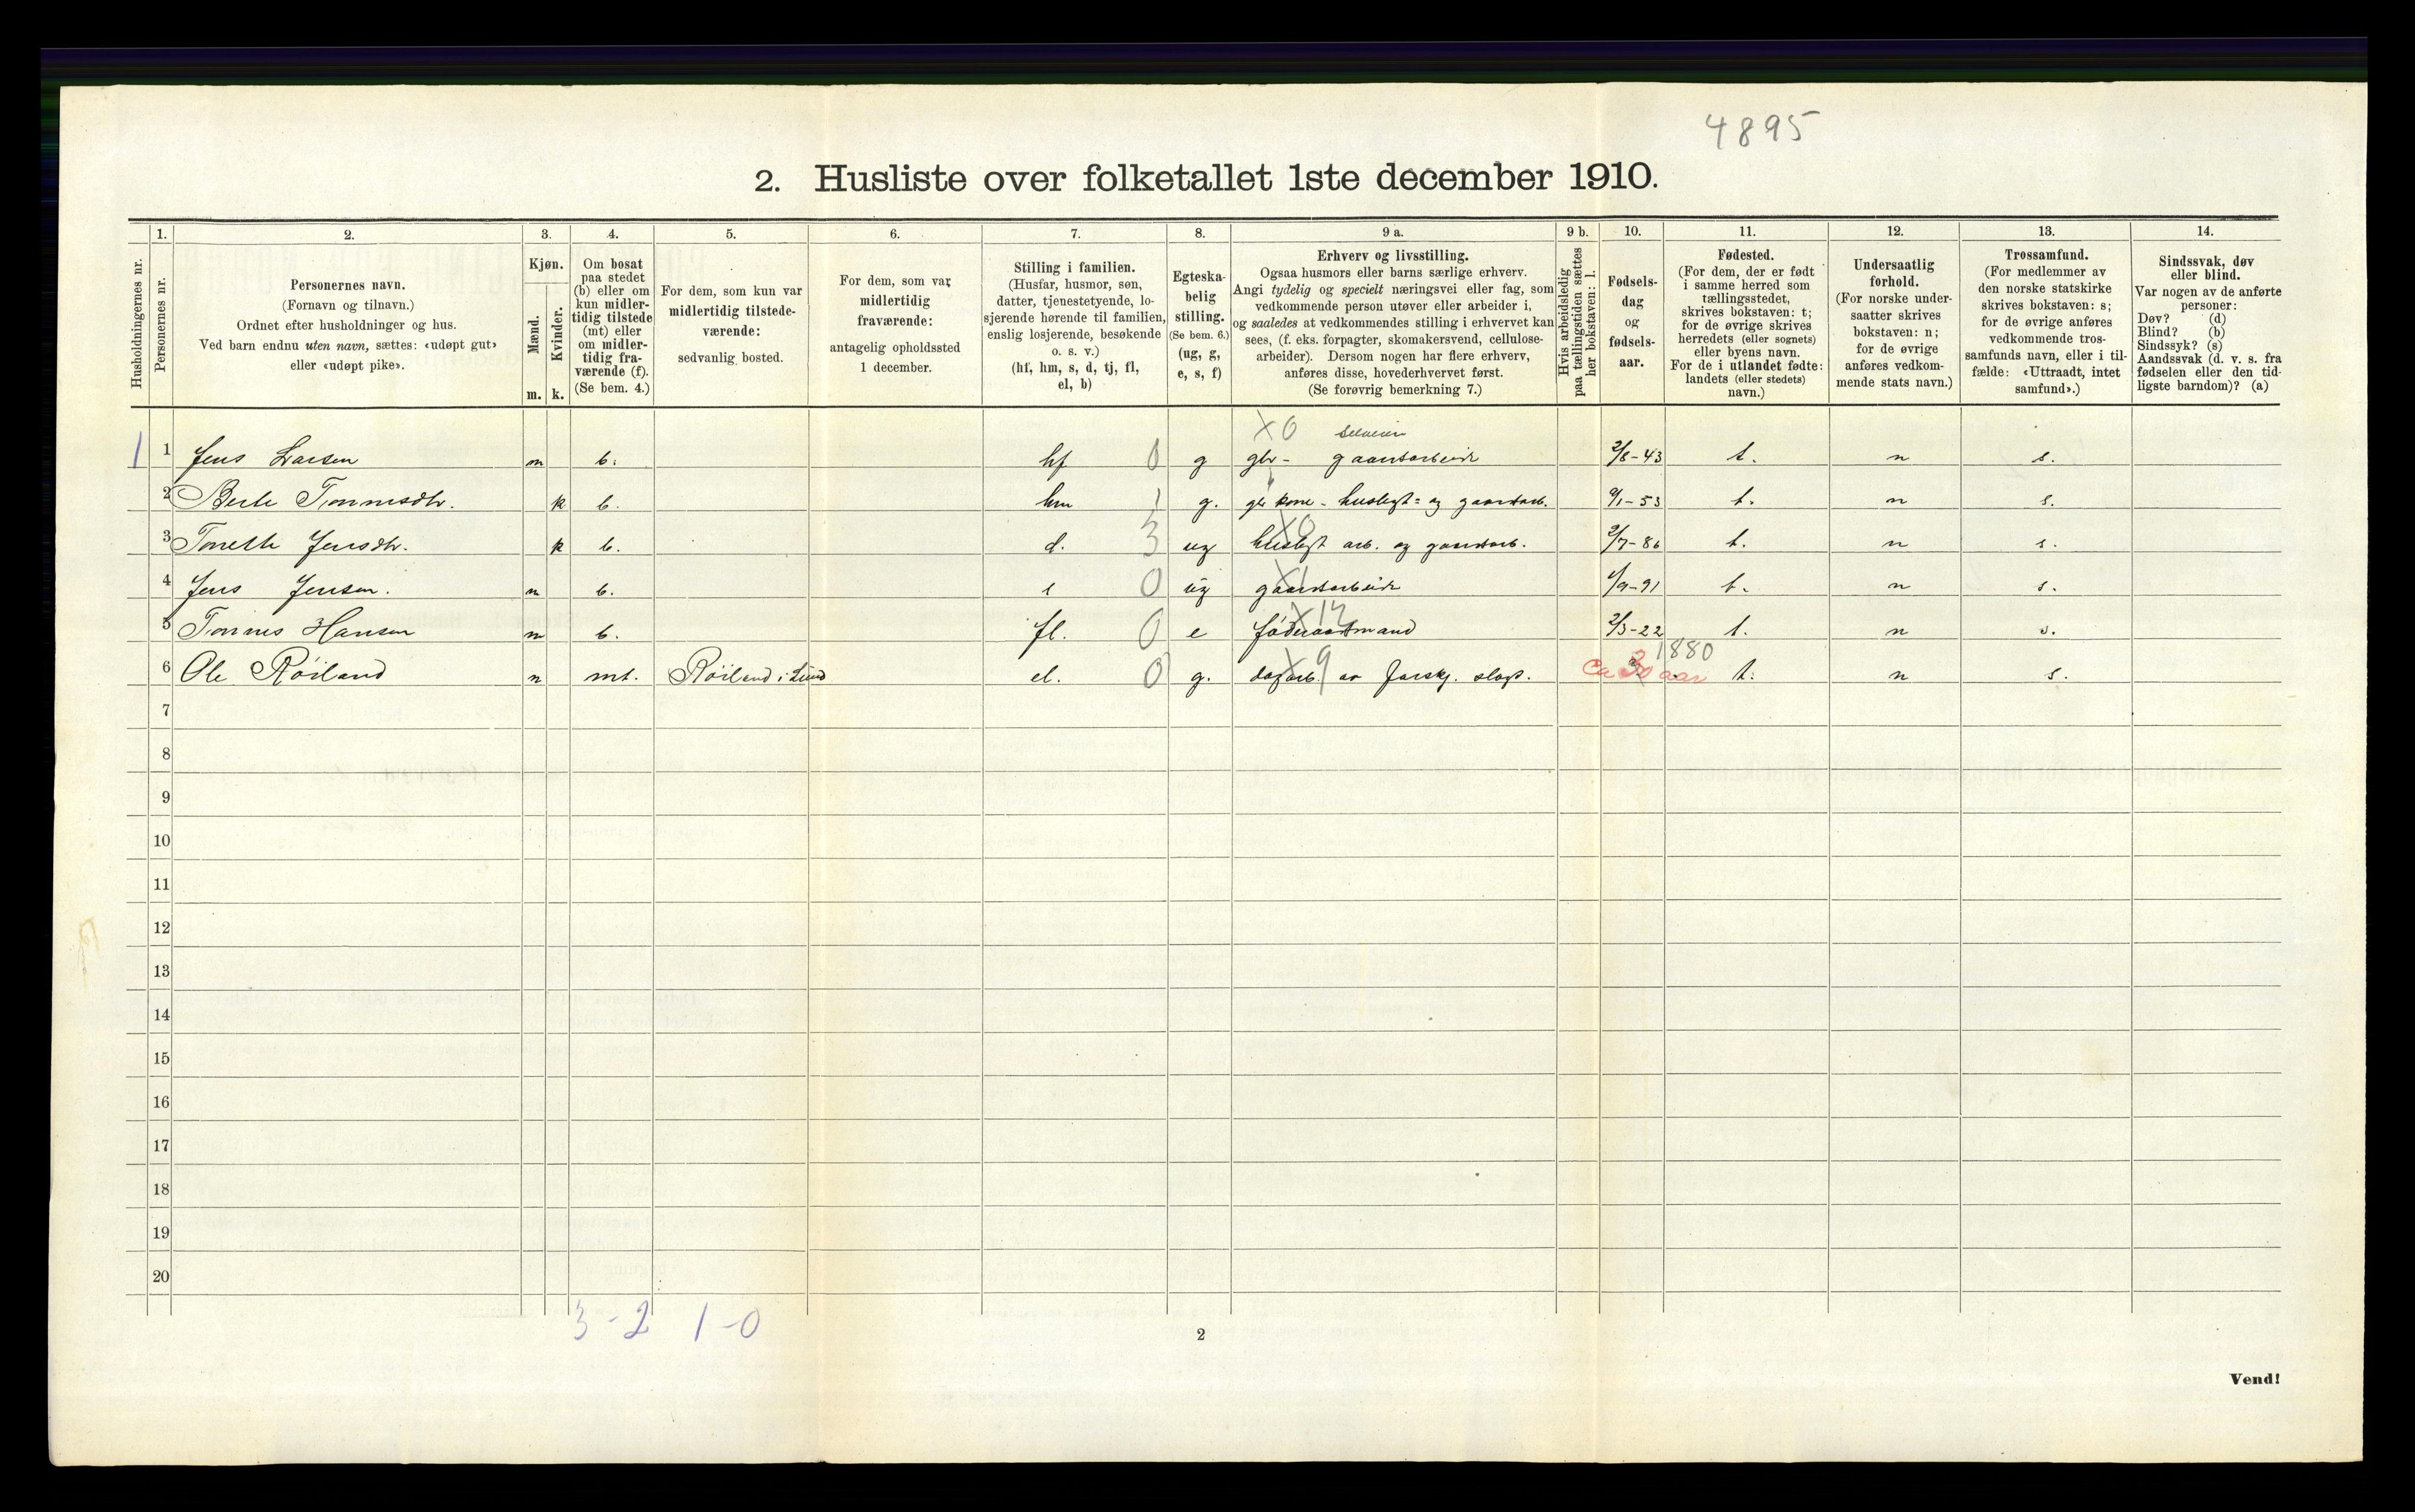 4895
2. Husliste over folketallet 1ste december 1910.
1. 2. 3. 4. 5. 6. 7. 8. 9 a. 9 b. 10. 11. 12. 13. 14.
Husholdningernes nr.
Personernes nr.
Personernes navn.
(Fornavn og tilnavn.)
Ordnet efter husholdninger og hus.
Ved barn endnu uten navn, sættes: «udøpt gut»
eller «udøpt pike».
Kjøn.
Mænd.
Kvinder.
m. k.
Om bosat
paa stedet
(b) eller om
kun midler-
tidig tilstede
(mt) eller
om midler-
tidig fra-
værende (f).
(Se bem. 4.)
For dem, som kun var
midlertidig tilstede-
værende:
sedvanlig bosted.
For dem, som var
midlertidig
fraværende:
antagelig opholdssted
1 december.
Stilling i familien.
(Husfar, husmor, søn,
datter, tjenestetyende, lo-
sjerende hørende til familien,
enslig losjerende, besøkende
o. s. v.)
(hf, hm, s, d, tj, fl,
el, b)
Egteska-
belig
stilling.
(Se bem. 6.)
(ug, g,
e, s, f)
Erhverv og livsstilling.
Ogsaa husmors eller barns særlige erhverv.
Angi tydelig og specielt næringsvei eller fag, som
vedkommende person utøver eller arbeider i,
og saaledes at vedkommendes stilling i erhvervet kan
sees, (f. eks. forpagter, skomakersvend, cellulose-
arbeider). Dersom nogen har flere erhverv,
anføres disse, hovederhvervet først.
(Se forøvrig bemerkning 7.)
Hvis arbeidsledig
paa tællingstiden sættes
her bokstaven: l.
Fødsels-
dag
og
fødsels-
aar.
Fødested.
(For dem, der er født
i samme herred som
tællingsstedet,
skrives bokstaven: t;
for de øvrige skrives
herredets (eller sognets)
eller byens navn.
For de i utlandet fødte:
landets (eller stedets)
navn.)
Undersaatlig
forhold.
(For norske under-
saatter skrives
bokstaven: n;
for de øvrige
anføres vedkom-
mende stats navn.)
Trossamfund.
(For medlemmer av
den norske statskirke
skrives bokstaven: s;
for de øvrige anføres
vedkommende tros-
samfunds navn, eller i til-
fælde: «Uttraadt, intet
samfund».)
Sindssvak, døv
eller blind.
Var nogen av de anførte
personer:
Døv? (d)
Blind? (b)
Sindssyk? (s)
Aandssvak (d. v. s. fra
fødselen eller den tid-
ligste barndom)? (a)
X0 selveier
1 1 Jens Larsen m b. hf 0 g gbr - gaardsarbeide 2/8-43 t. n s.
2 Berte Tønnesdtr. k b. hm 1 g. gbr kone - husligt= og gaardsarb. 9/1-53 t. n s.
3 Tonette Jensdtr. k b. d. 3 ug X0 husligt arb. og gaardsarb. 2/7-86 t. n s.
4 Jens Jensen. m b. s 0 ug X1 gaardsarbeide 1/9-91 t. n s.
5 Tønnes Hansen m b. fl. 0 e X12 føderaadsmand 2/3-22 t. n s.
1880
6 Ole Röiland m mt. Röiland i Lund el. 0 g. X9 dagarb. ca 30 aar t. n s.
7
8
9
10
11
12
13
14
15
16
17
18
19
20
3-2 1-0
2
Vend!